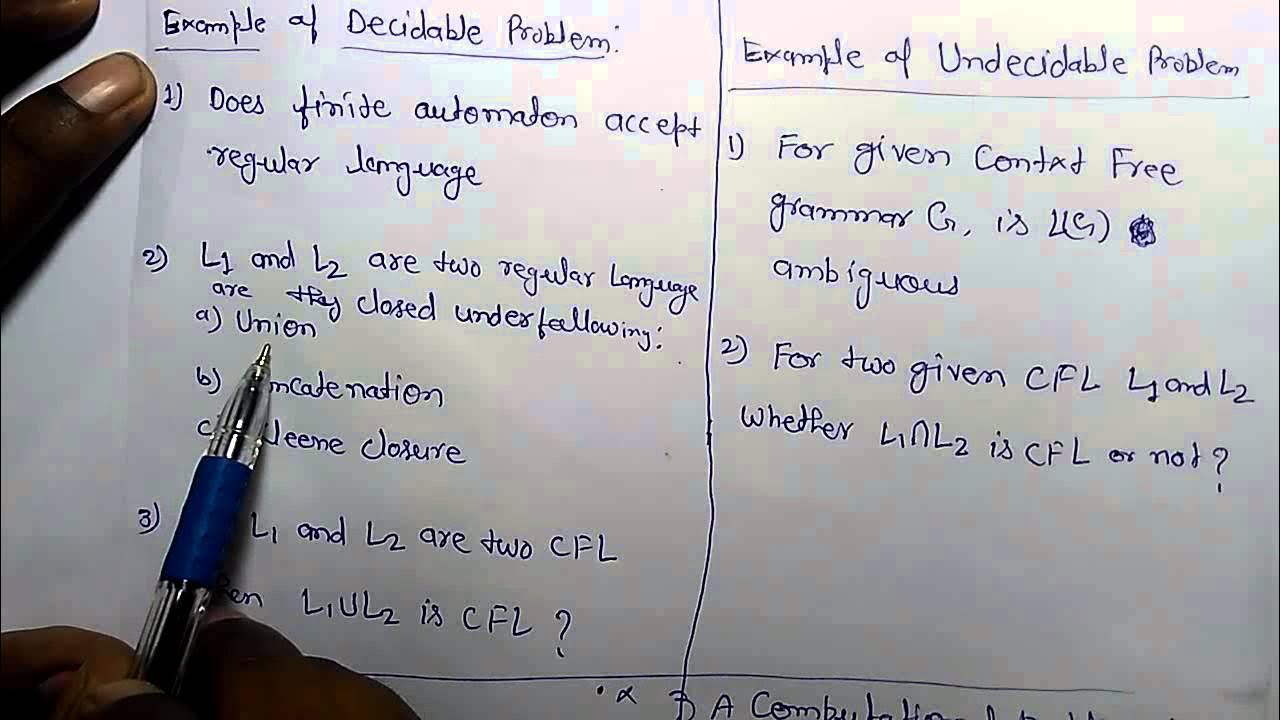 Example of Decidable Problem:
1) Does finite automaton accept
regular language
2) L1 and L2 are two regular Language
are they closed under following:
a) Union
b) Concatenation
c) Kleene closure
3) L1 and L2 are two CFL
L1UL2 is CFL ?
Example of Undecidable Problem
1) For given Contxt Free
grammar G, is L(G)
ambiguous
2) For two given CFL L1 and L2
Whether L1∩L2 is CFL or not ?
A